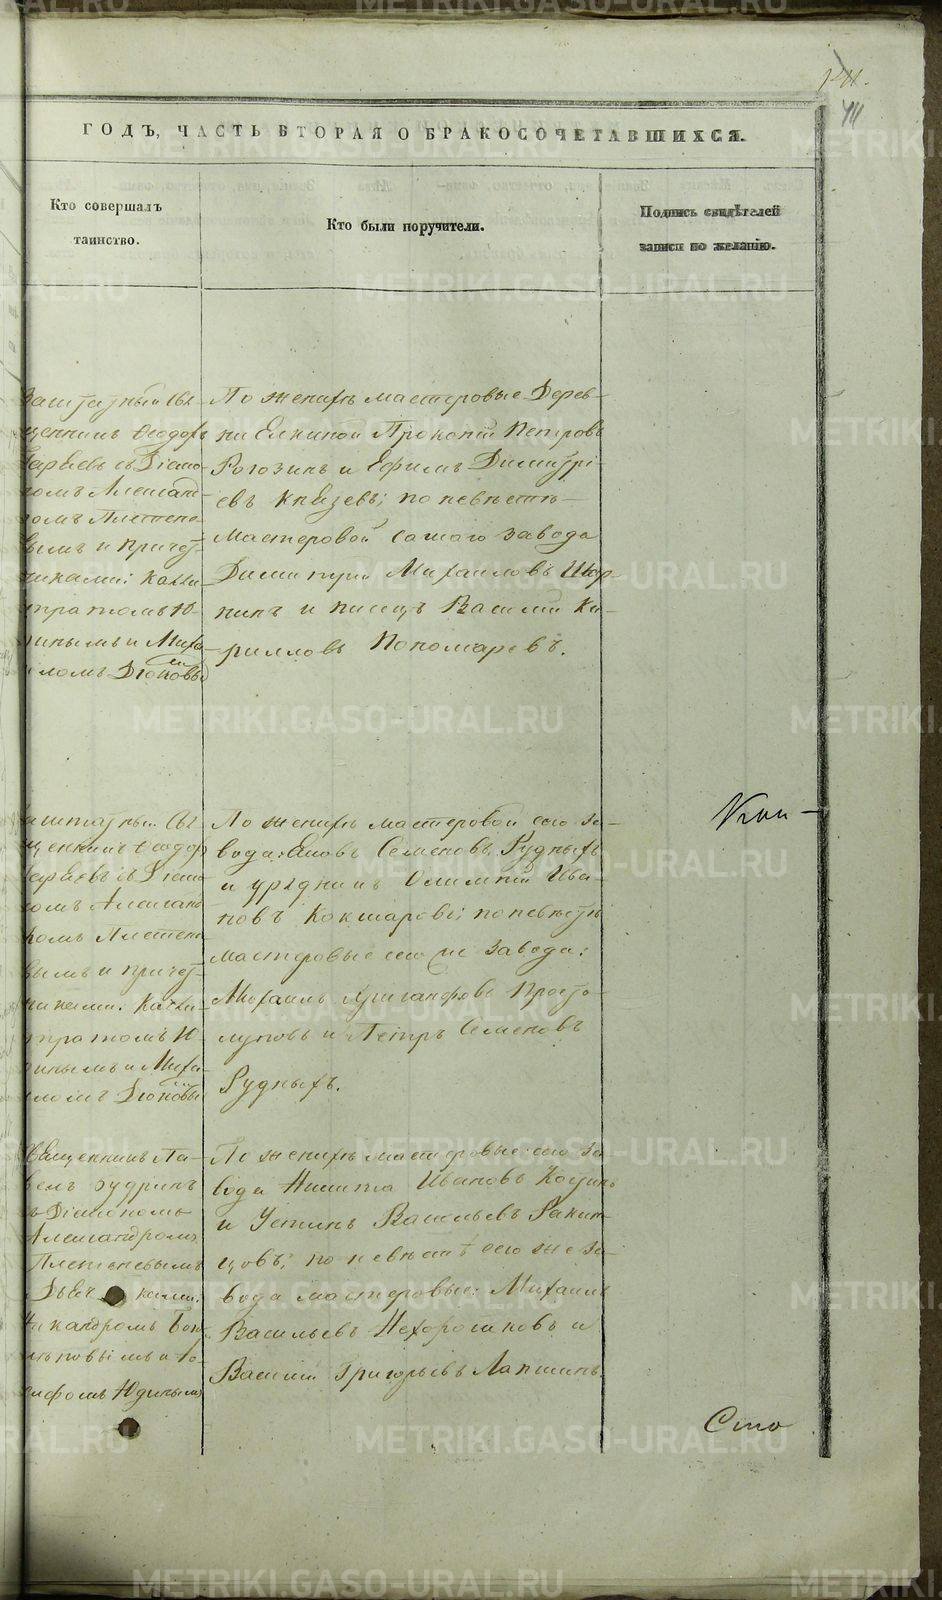 141.
ГОДЪ, ЧАСТЬ ВТОРАЯ О БРАКОСОЧЕТАВШИХСЯ.
Кто совершалъ
таинство.
Кто были поручители.
Подпись свидѣтелей
записи по желанію.
Заштатный Свя-
щенникъ Ѳеодоръ
съ Діако-
номъ Александ-
ромъ Плетене-
вымъ и причет-
никами: Калли-
стратомъ Ю-
динымъ и Миха-
иломъ
По женихѣ мастеровые Дерев-
ни Елкиной Прокопій Петровъ
Рогозинъ и Ефимъ Димитрі-
евъ Князевъ; по невѣстѣ
Мастеровой самаго завода
Димитрій Михаиловъ
и писецъ Василій Ки-
рилловъ Пономаревъ.
Заштатный Свя-
щенникъ Ѳеодоръ
съ Діако-
номъ Алексан-
дромъ Плетене-
вымъ и причет-
никами: Калли-
стратомъ Ю-
динымъ и Миха-
иломъ
По женихѣ мастеровой сего за-
вода: Яковъ Семеновъ Рудныхъ
и урядникъ Олимпій Ива-
новъ Кокшаровъ; по невѣстѣ
мастеровые сего же завода:
Михаилъ
и Петръ Семеновъ
Рудныхъ.
Священникъ Па-
велъ Зудринъ
съ Діакономъ
Александромъ
Плетеневымъ
ками:
Никандромъ
и Іо-
сифомъ Юдинымъ
По женихѣ мастеровые сего за-
вода Никита Ивановъ
и Устинъ Васильевъ Ракит-
цовъ; по невѣстѣ сего же за-
вода мастеровые: Михаилъ
Васильевъ Нехорошковъ и
Василій Григорьевъ Лапшинъ.
METRIKI.GASO-URAL.RU